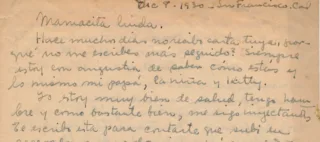 Dic 8 - 1930. San Francisco, Cal
Mamacita linda.
Hace muchos dias no recibo carta tuya, ¿por
qué no me escribes más seguido? Siempre
estoy con angustia de saber cómo estás y
lo mismo mi papá, la niña y Katty.
Yo estoy muy bien de salud, tengo ham
bre y como bastante bien, me sigo inyectando,
Te escribo esta para contarte que subí su